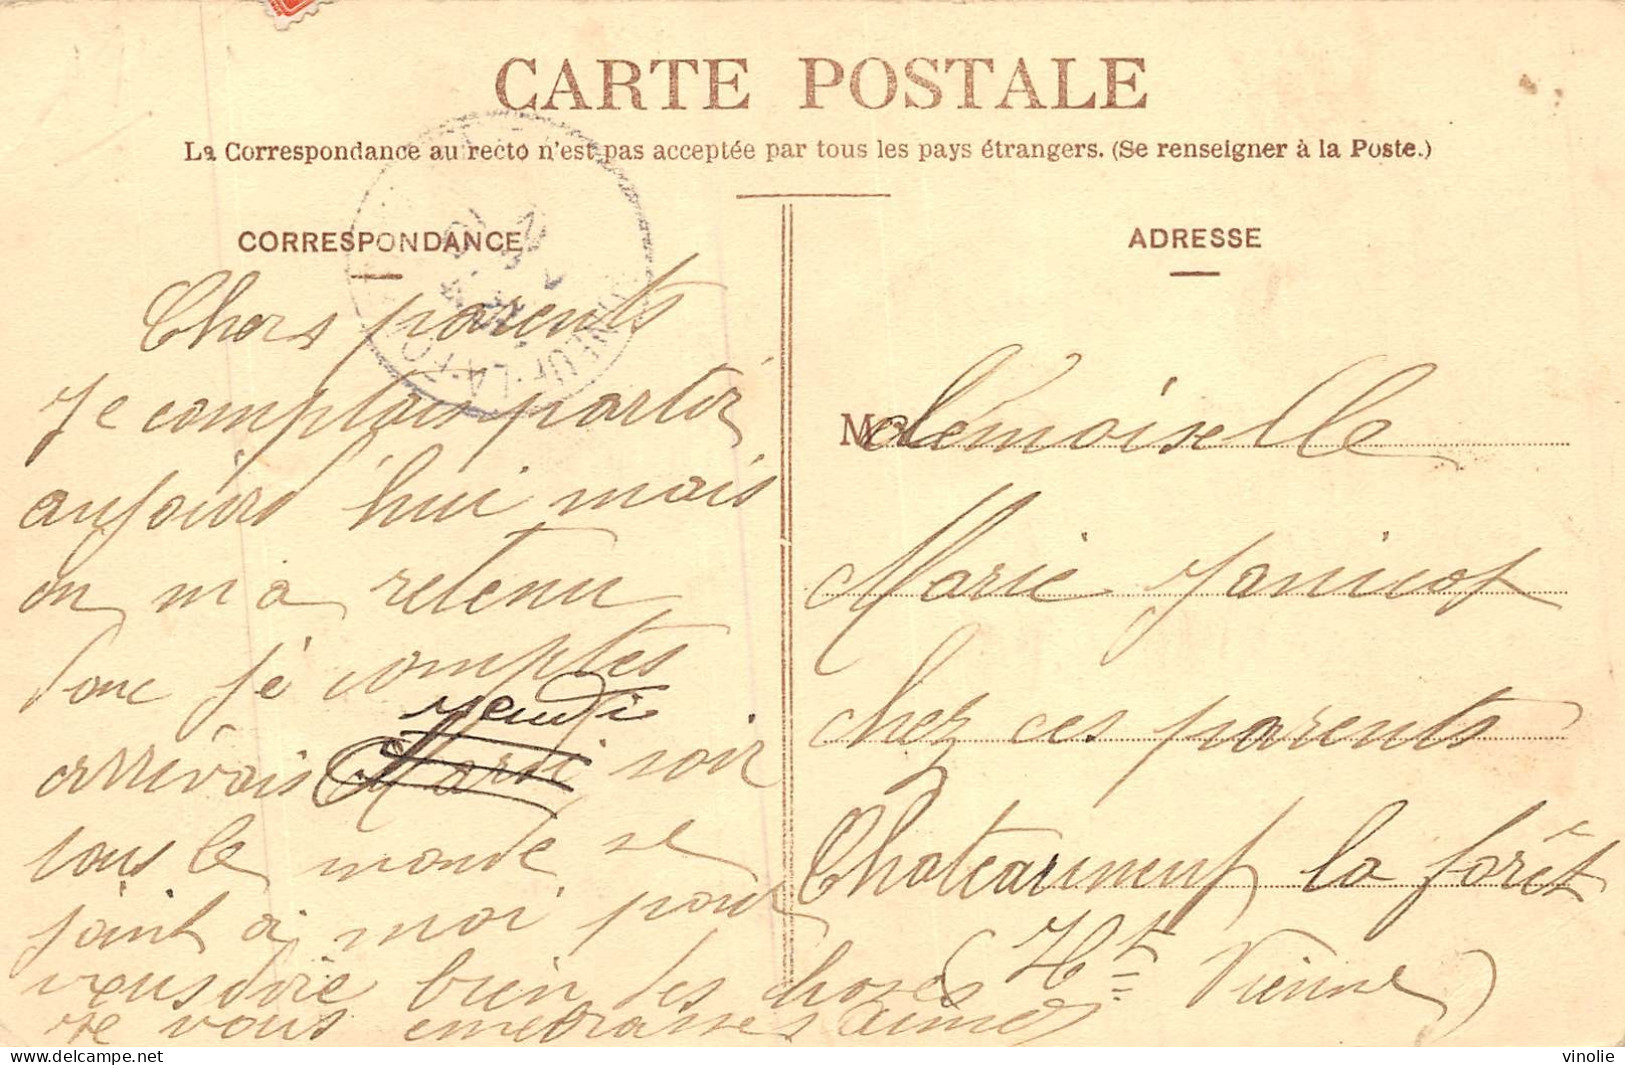 CARTE POSTALE
La Correspondance au recto n'est pas acceptée par tous les pays étrangers. (Se renseigner à la Poste.)
CORRESPONDANCE
Chers parents
Je comptais partir
aujourd'hui mais
on m a retenu
donc je comptes
jeudi
arrivais Mardi soir
tous le monde se
joint a moi pour
vous dire bien des choses
je vous embrasses
ADRESSE
Mademoiselle
Marie Janicot
chez ces parents
Chateauneuf la forêt
(Hte Vienne)
NEUF-LA-FO
delcampe.net
vinolie